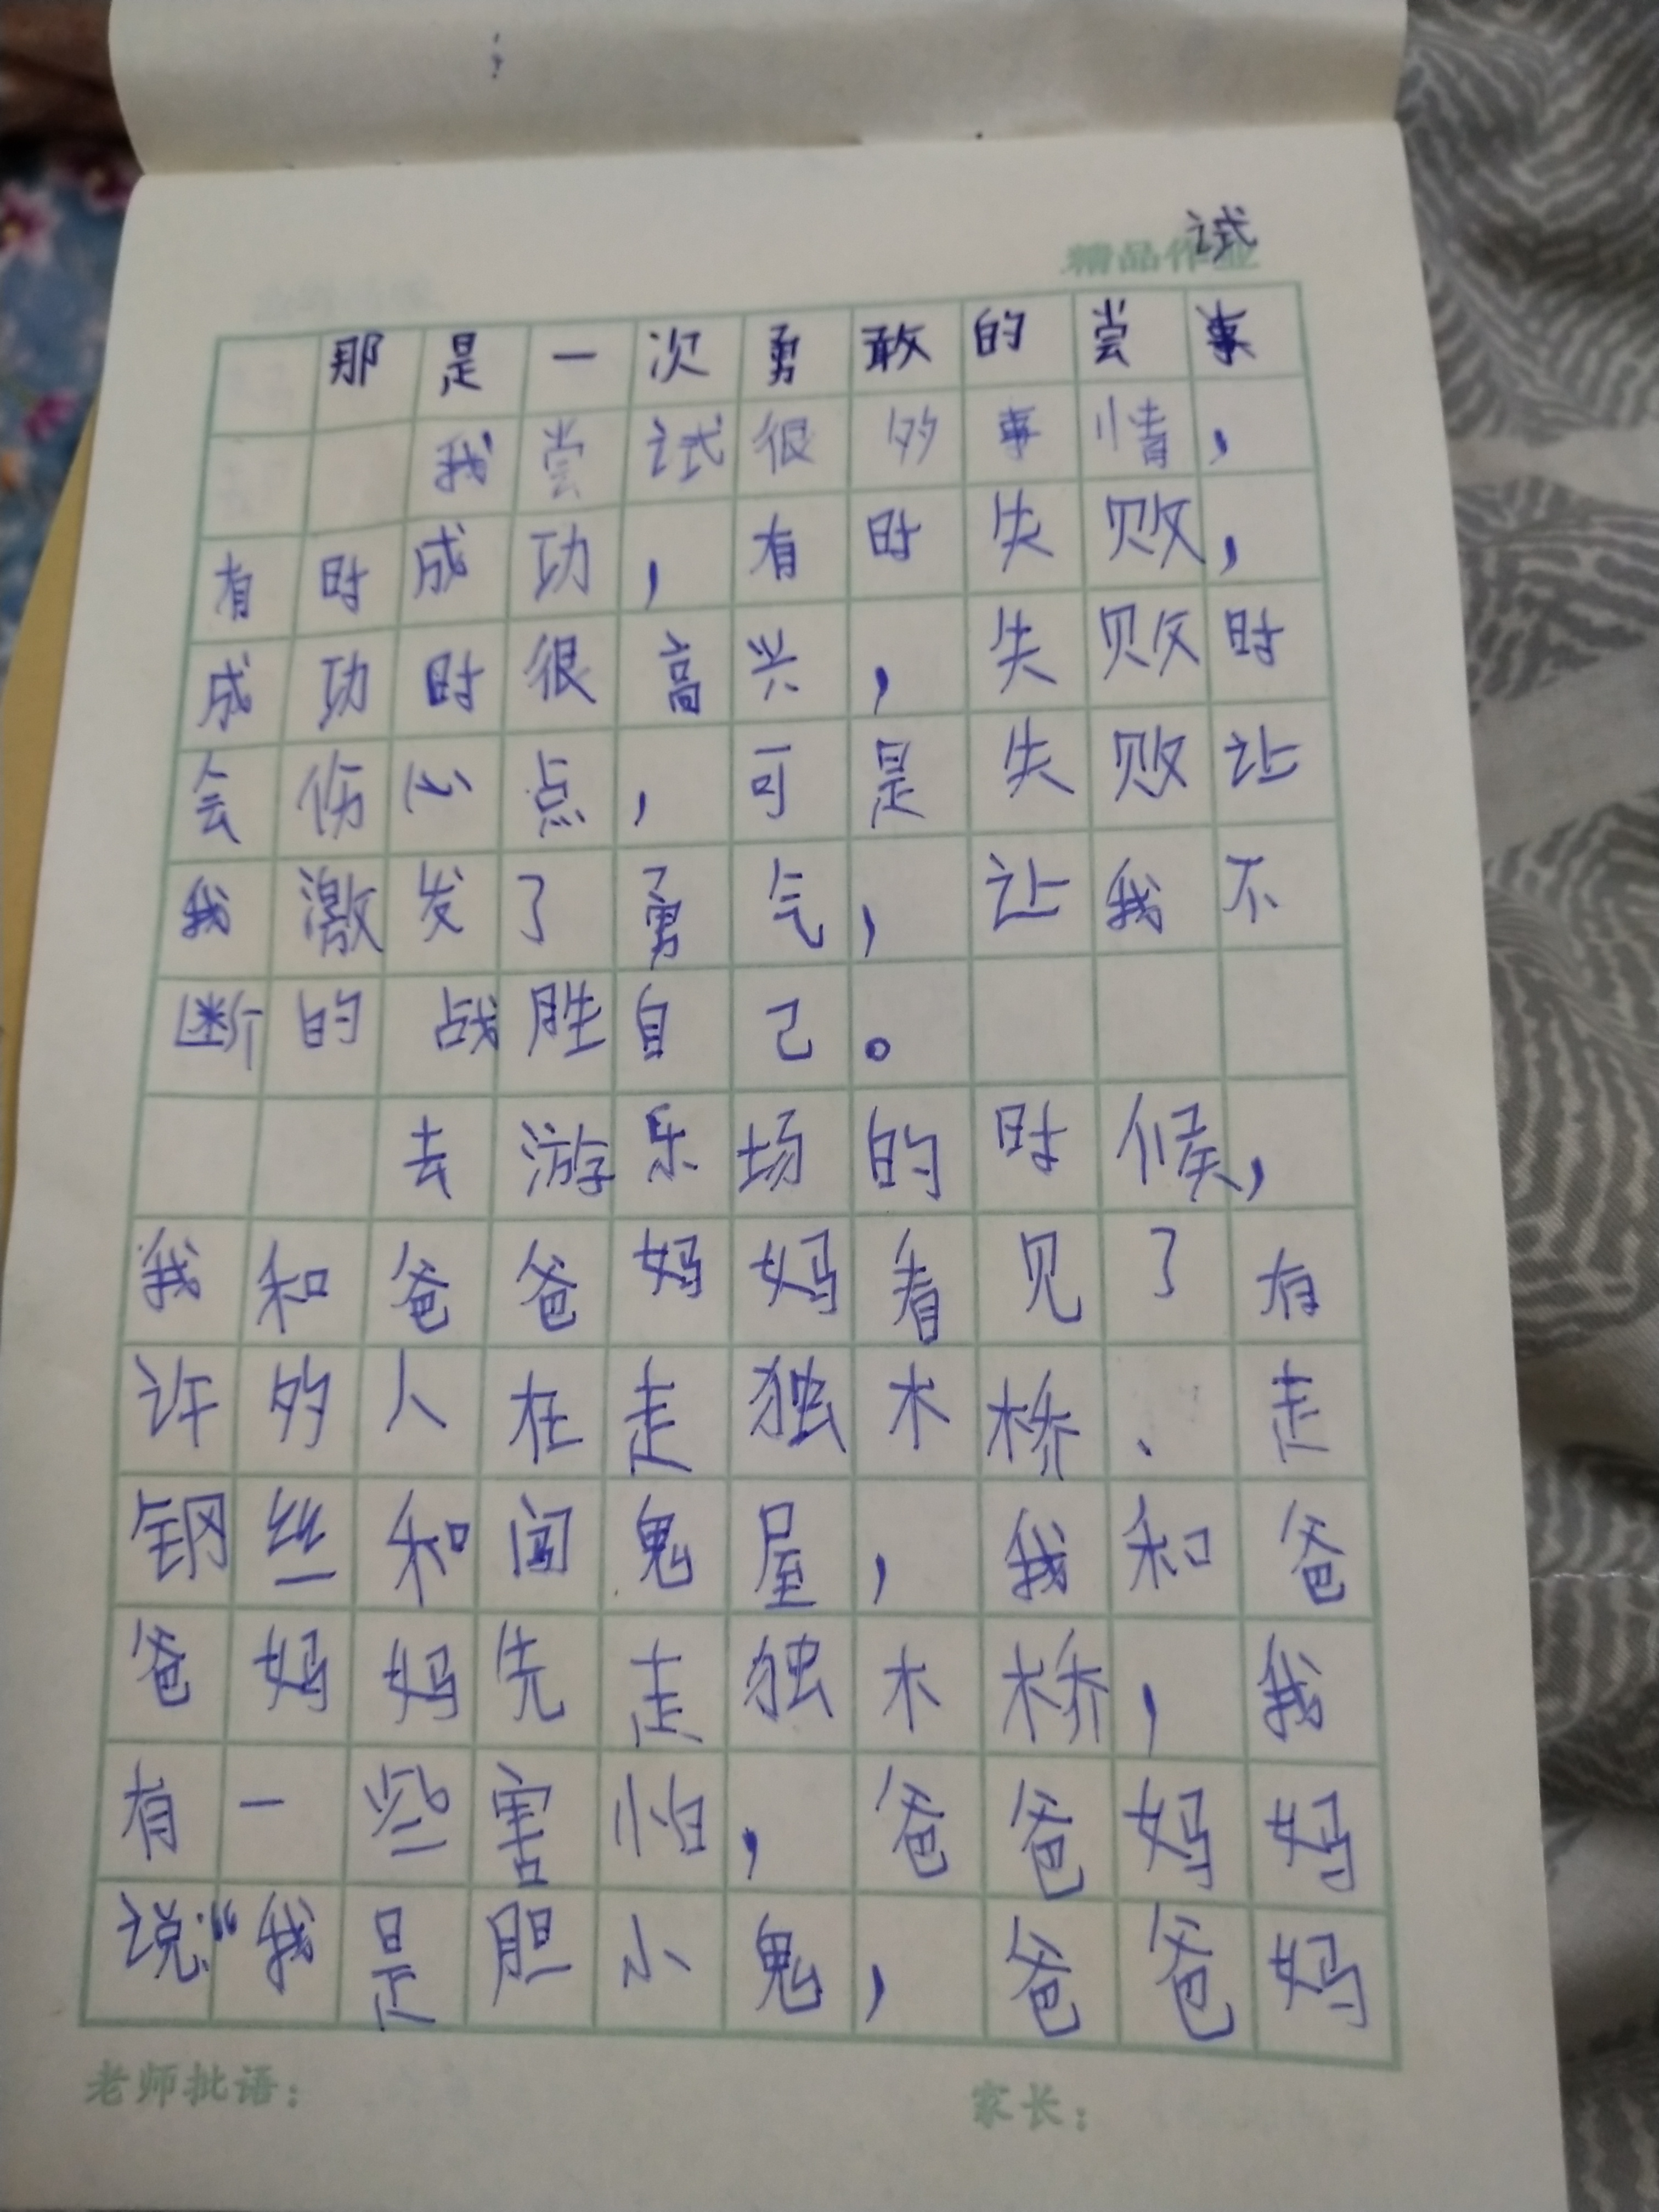 精品作业
试
那是一次勇敢的尝事
我尝试很多事情，
有时成功，有时失败，
成功时很高兴，失败时
会伤心点，可是失败让
我激发了勇气，让我不
断的战胜自己。
去游乐场的时候，
我和爸爸妈妈看见了有
许多人在走独木桥、走
钢丝和闯鬼屋，我和爸
爸妈妈先走独木桥，我
有一些害怕，爸爸妈妈
说：“我是胆小鬼，爸爸妈
老师批语：
家长：